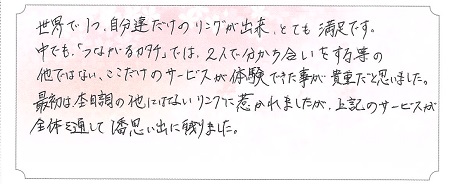 世界で1つ、自分達だけのリングが出来、とても満足です。
中でも、「つながるカタチ」では、2人で分かち合いをする等の
他ではない、ここだけのサービスが体験できた事が貴重だと思いました。
最初は、杢目調の他にはないリングに惹かれましたが、上記のサービスが
全体を通して1番思い出に残りました。